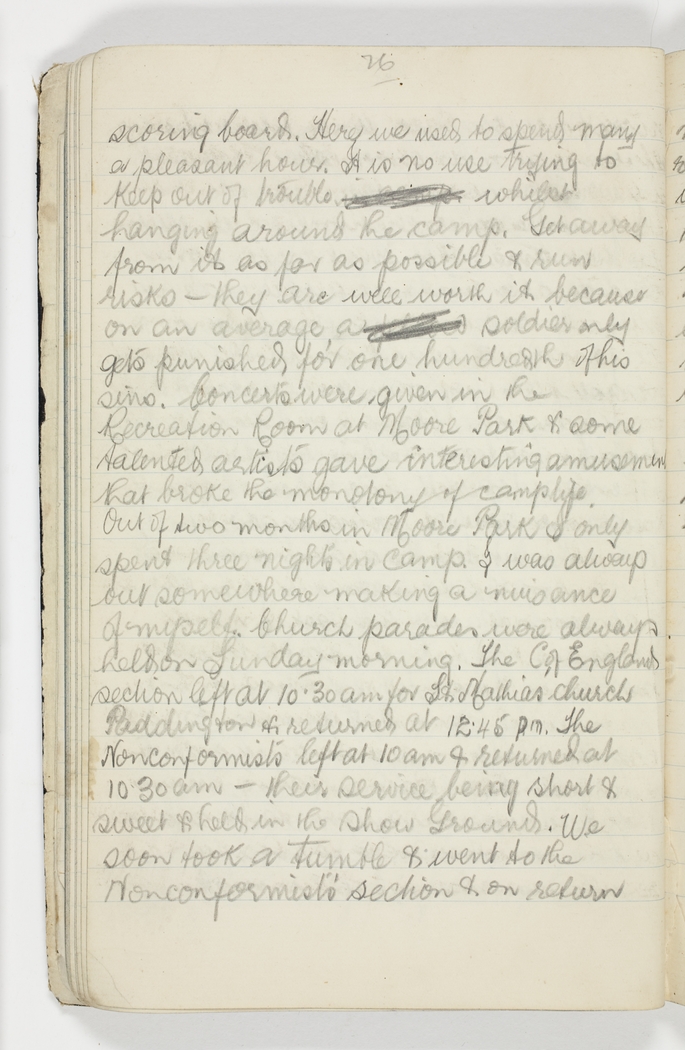 26
scoring board. Here we used to spend many
a pleasant hour. It is no use trying to
keep out of trouble whilst
hanging around the camp. Get away
from it as far as possible & run
risks – they are well worth it because
on an average a soldier only
gets punished for one hundredth of his
sins. Concerts were given in the
Recreation Room at Moore Park & some
talented artists gave interesting amusement
that broke the monotony of camp life.
Out of two months in Moore Park I only
spent three nights in camp. I was always
out somewhere making a nuisance
of myself. Church parades were always
held on Sunday morning. The C of England
section left at 10.30 am for St. Mathias church
Paddington & returned at 12.45 pm. The
Nonconformists left at 10 am & returned at
10.30 am – their service being short &
sweet & held in the Show Ground. We
soon took a tumble & went to the
Nonconformists' section & on return